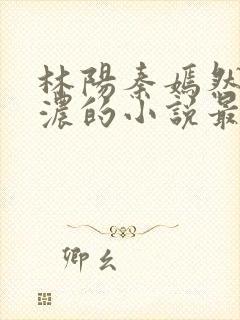 林陽秦嫣然
濃的小說最
卿幺